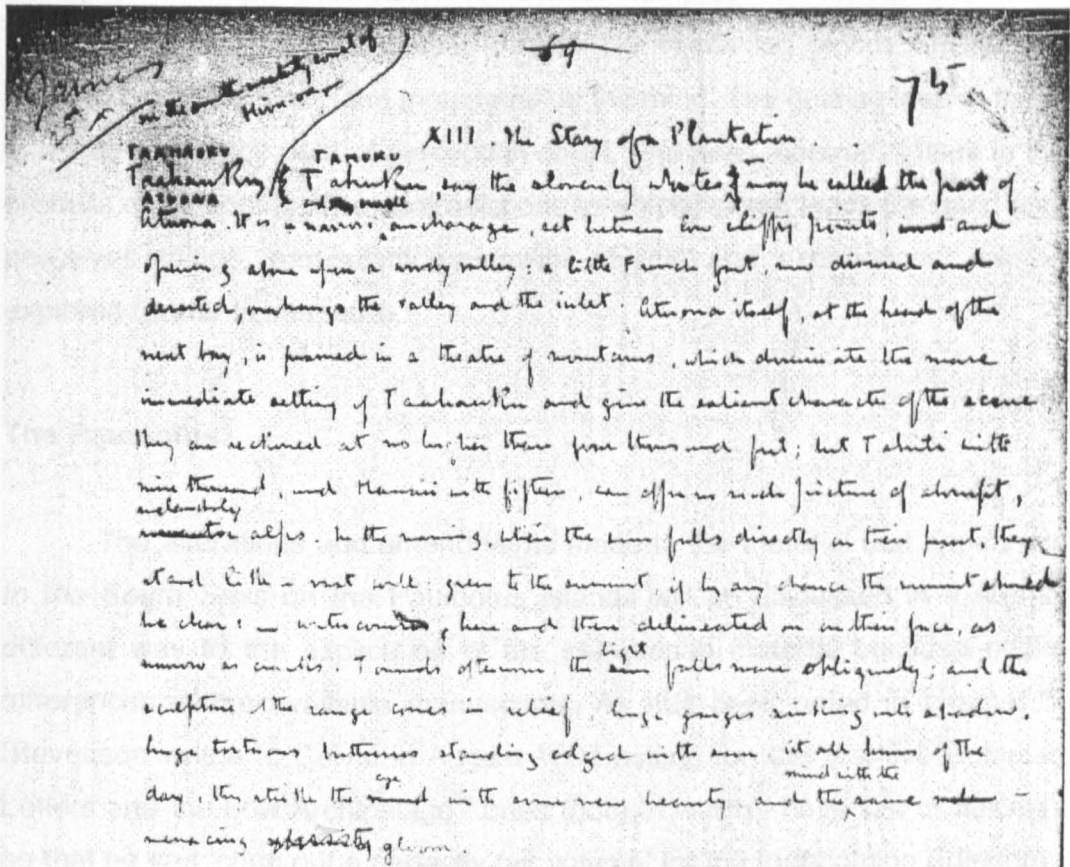 James
69
7 bis
on the southwesterly coast of Hiva-oa
XIII The Story of a Plantation
TAAHAUKU TAHUKU
Taahauku Tahuku say the slovenly whites may be called the port of
ATUONA and small
Atuona. It is a narrow anchorage, set between low cliffy points and
opening above upon a woody valley: a little French fort, now disused and
deserted, overhangs the valley and the inlet Atuona itself, at the head of the
next bay, is framed in a theatre of mountains, which dominate the more
immediate setting of Taahauku and give the salient character of the scene
They are reckoned at no higher than four thousand feet; but Tahiti with
nine thousand, and Hawaii with fifteen, can offer no such picture of abrupt,
melancholy
alps. In the morning, when the sun falls directly on their front, they
stand like a vast wall green to the summit, if by any chance the summit should
be clear: water courses, here and there delineated on their face, as
narrow as cracks. Towards afternoon the light falls more obliquely, and the
sculpture of the range comes in relief, huge gorges sinking into shadow,
huge tortuous buttresses standing edged with sun. At all hours of the
mind with the
day they strike the eye with some new beauty and the same
menacing gloom